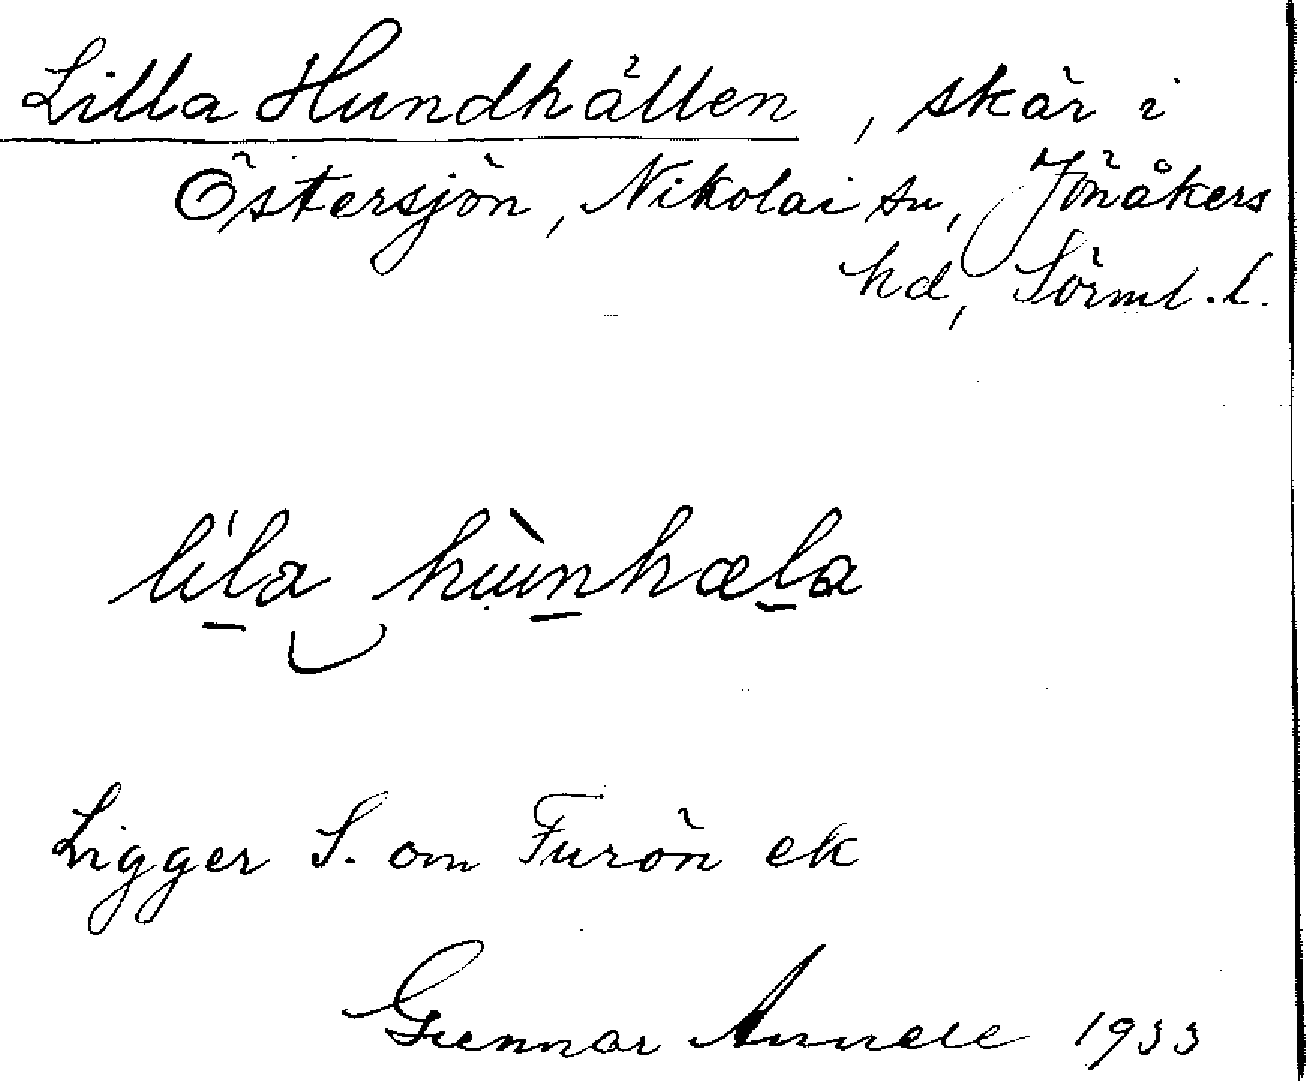 Lilla Hundhällen, skär i
Östersjön, Nikolai sn, Jönåkers
hd, Sörml. l.
líla hùnhæla
Ligger S. om Furön ek
Gunnar Annell 1933